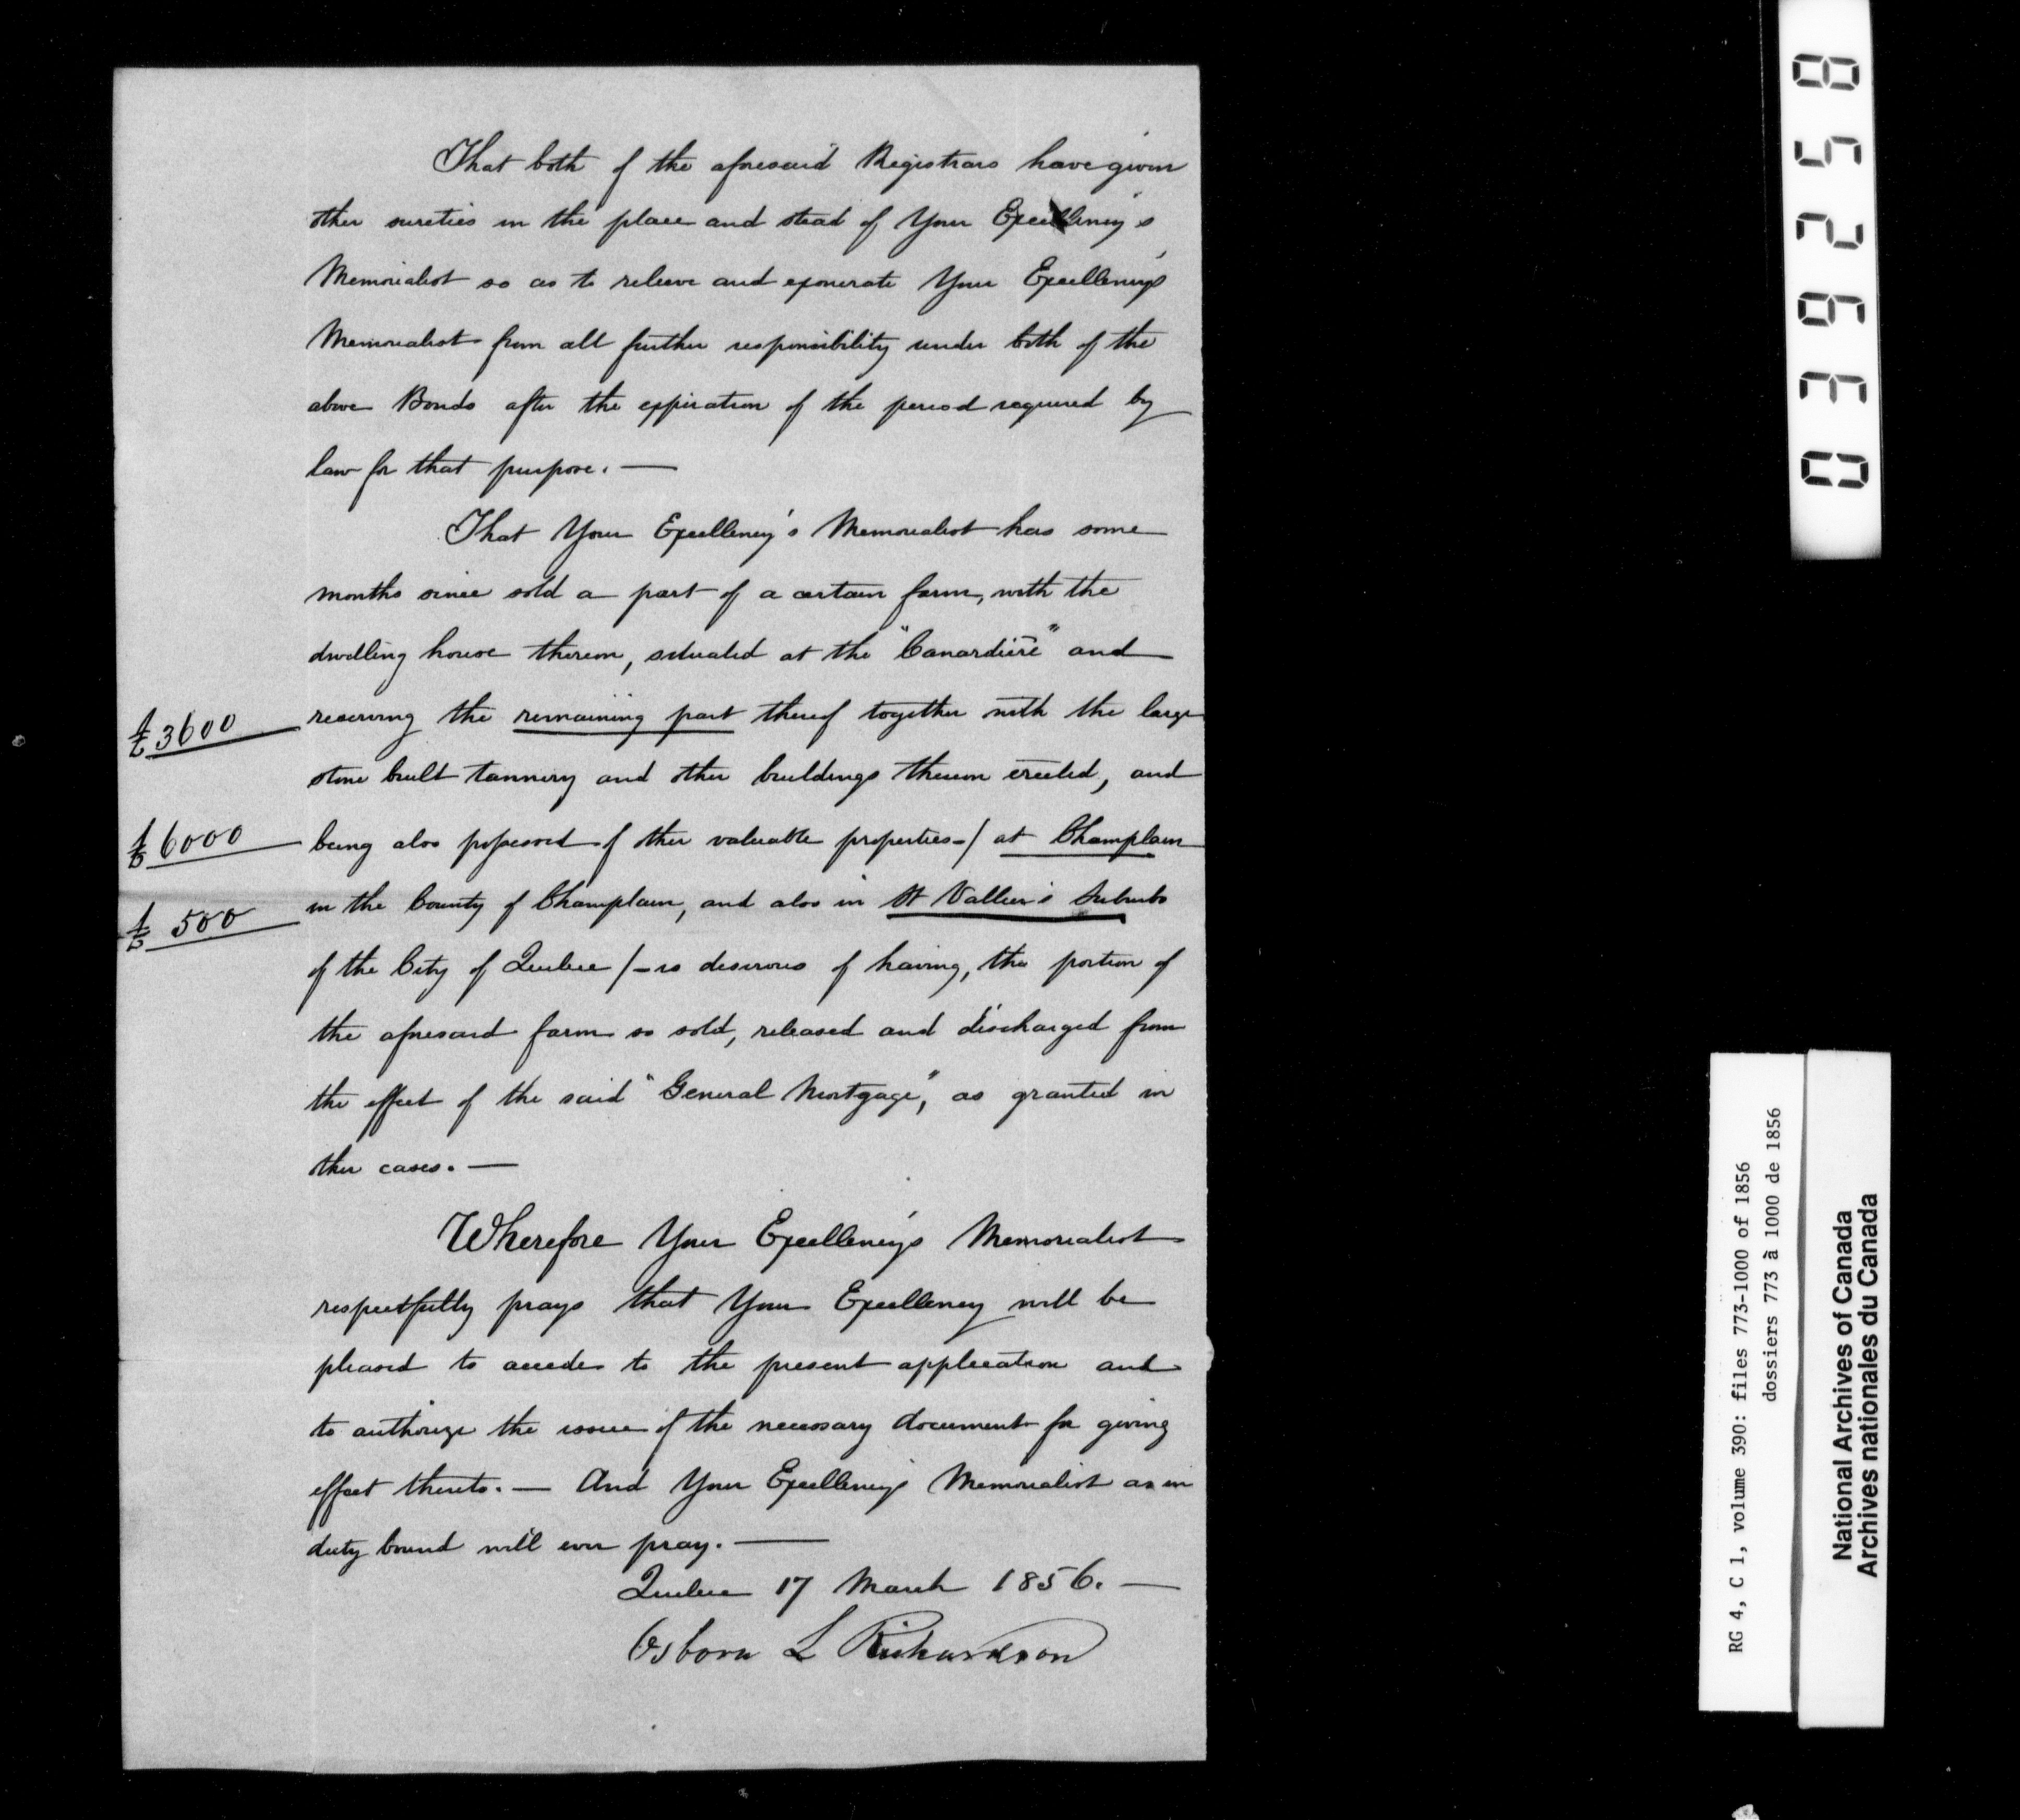 That both of the aforesaid Registrars have given
other sureties in the place and stead of Your Excellency's
Memorialist so as to relieve and exonerate Your Excellency's
Memorialist from all further responsibility under both of the
above Bonds after the expiration of the period required by
law for that purpose. —
That Your Excellency's Memorialist has some
months since sold a part of a certain farm, with the
dwelling house thereon, situated at the "Canardière" and
£3600 reserving the remaining part thereof together with the large
stone built tannery and other buildings thereon erected, and
£6000 being also possessed of other valuable properties -/ at Champlain
£500 in the County of Champlain, and also in St Vallier's Suburbs
of the City of Quebec /- is desirous of having, the portion of
the aforesaid farm so sold, released and discharged from
the effect of the said "General Mortgage", as granted in
other cases. —
Wherefore Your Excellency's Memorialist
respectfully prays that Your Excellency will be
pleased to accede to the present application and
to authorize the issue of the necessary document for giving
effect thereto. — And Your Excellency's Memorialist as in
duty bound will ever pray. —
Quebec 17 March 1856. —
Osborn L Richardson
036258
RG 4, C 1, volume 390: files 773-1000 of 1856
dossiers 773 à 1000 de 1856
National Archives of Canada
Archives nationales du Canada